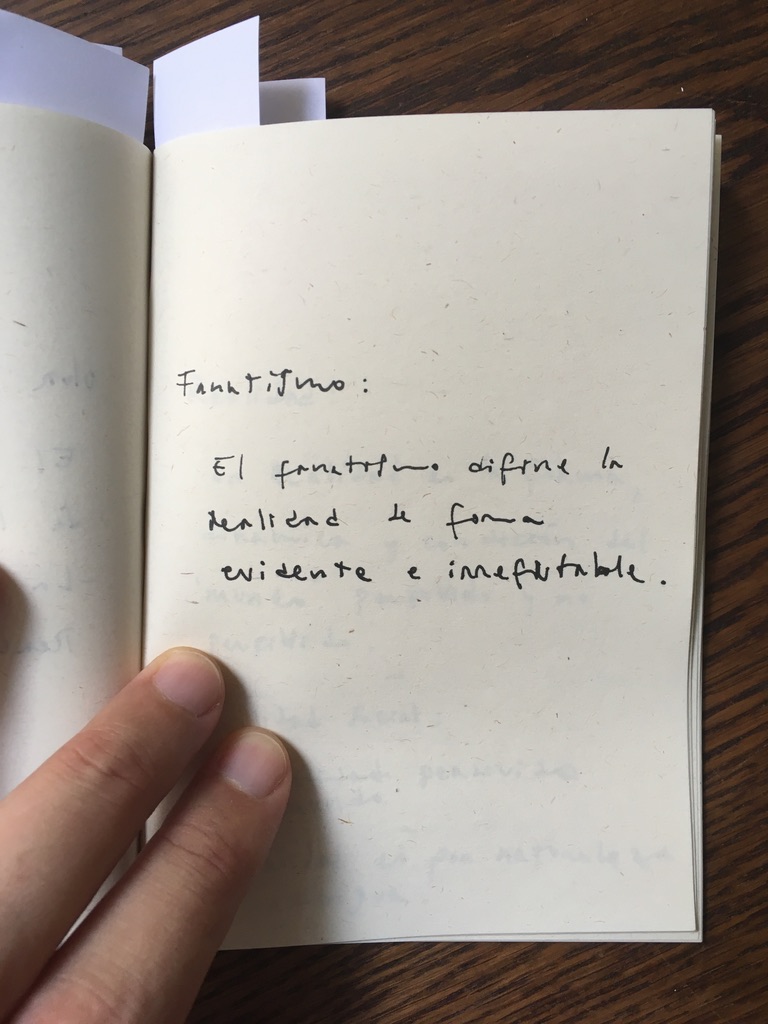 Fanatismo:
El fanatismo define la
realidad de forma
evidente e irrefutable.